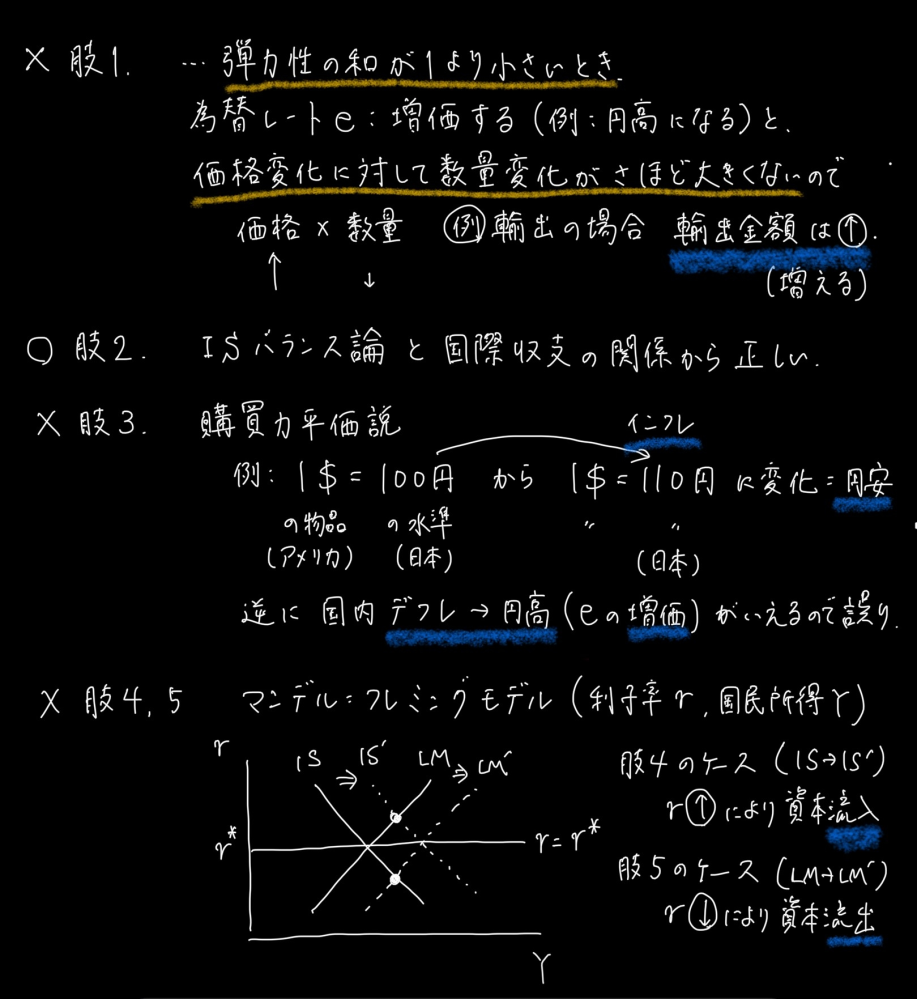 × 肢1. … 弾力性の和が1より小さいとき、
為替レートe：増価する（例：円高になる）と、
価格変化に対して数量変化がさほど大きくないので
価格 × 数量 例）輸出の場合 輸出金額は↑.
↑ ↓ （増える）
○ 肢2. ISバランス論と国際収支の関係から正しい.
× 肢3. 購買力平価説 インフレ
例：1$ = 100円 から 1$ = 110円 に変化 = 円安
の物品 の水準 〃 〃
（アメリカ） （日本） （日本）
逆に 国内 デフレ → 円高（eの増価）がいえるので誤り.
× 肢4, 5 マンデル=フレミングモデル（利子率r, 国民所得Y）
r IS ⇒ IS' LM ⇒ LM'
肢4のケース（IS→IS'）
r↑により資本流入
r* r = r*
肢5のケース（LM→LM'）
r↓により資本流出
Y